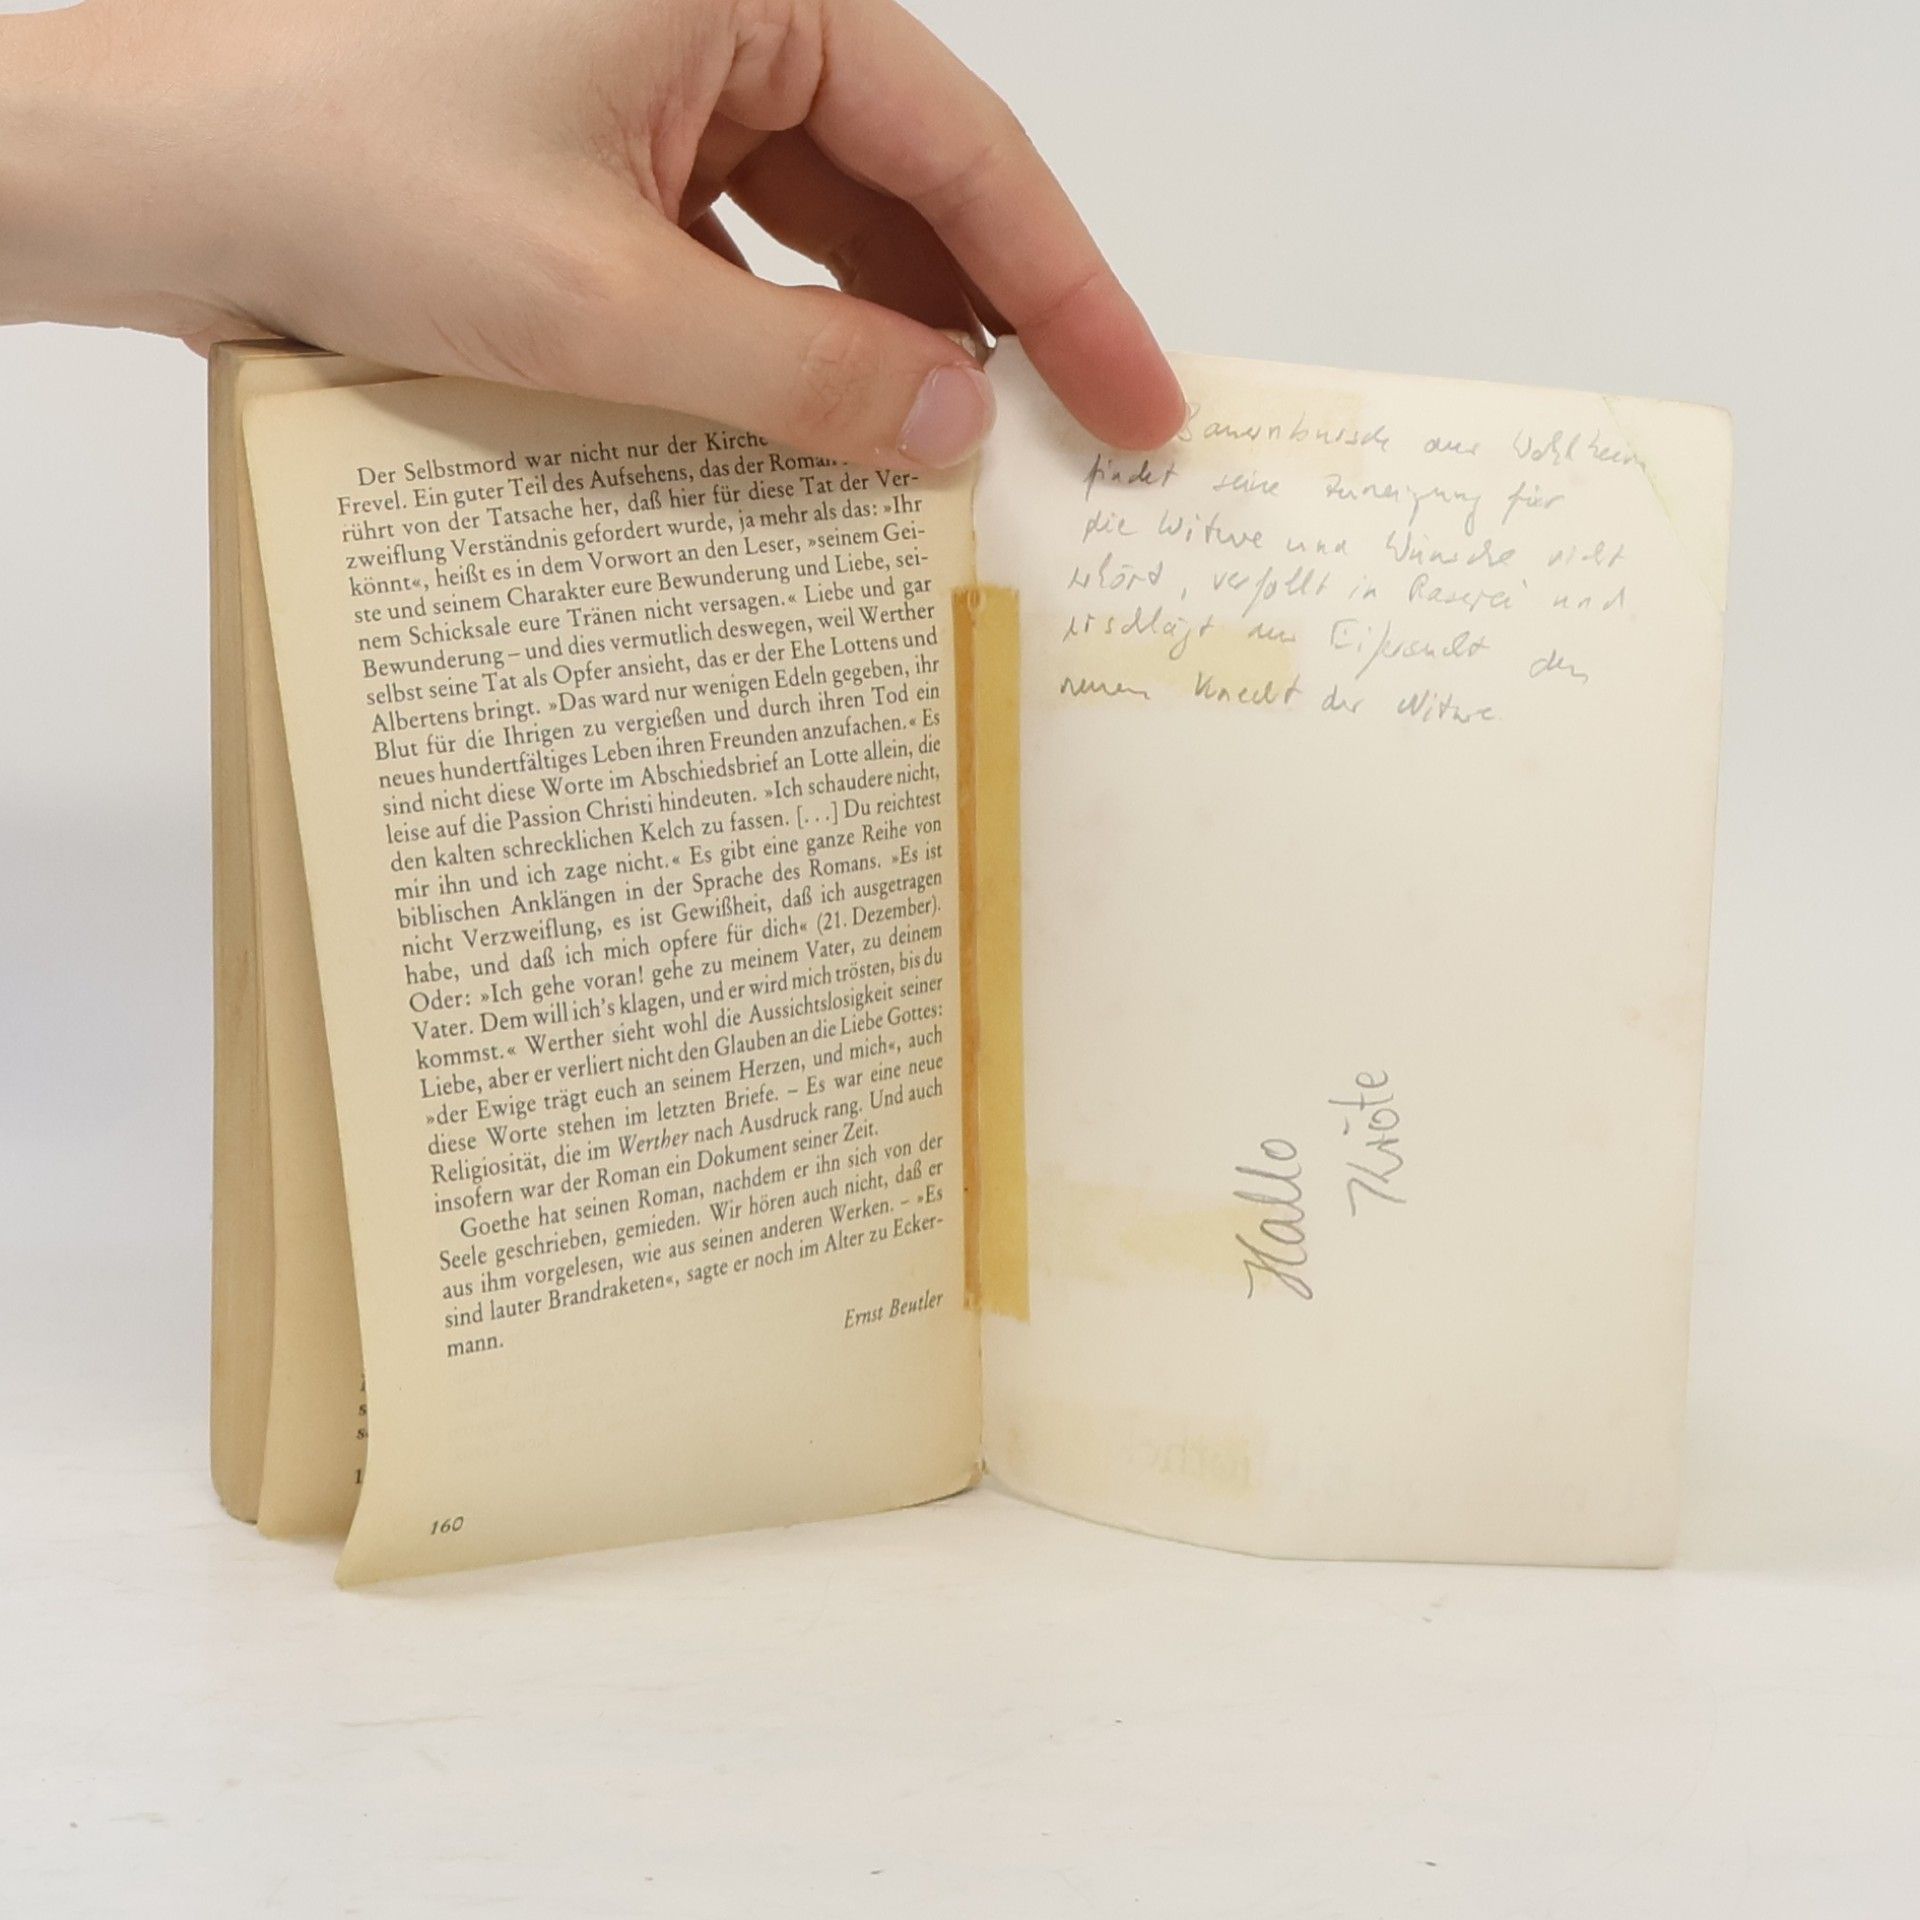 Der Selbstmord war nicht nur der Kirche
Frevel. Ein guter Teil des Aufsehens, das der Roman
rührt von der Tatsache her, daß hier für diese Tat der Ver-
zweiflung Verständnis gefordert wurde, ja mehr als das: »Ihr
könnt«, heißt es in dem Vorwort an den Leser, »seinem Gei-
ste und seinem Charakter eure Bewunderung und Liebe, sei-
nem Schicksale eure Tränen nicht versagen.« Liebe und gar
Bewunderung – und dies vermutlich deswegen, weil Werther
selbst seine Tat als Opfer ansieht, das er der Ehe Lottens und
Albertens bringt. »Das ward nur wenigen Edeln gegeben, ihr
Blut für die Ihrigen zu vergießen und durch ihren Tod ein
neues hundertfältiges Leben ihren Freunden anzufachen.« Es
sind nicht diese Worte im Abschiedsbrief an Lotte allein, die
leise auf die Passion Christi hindeuten. »Ich schaudere nicht,
den kalten schrecklichen Kelch zu fassen. [...] Du reichtest
mir ihn und ich zage nicht.« Es gibt eine ganze Reihe von
biblischen Anklängen in der Sprache des Romans. »Es ist
nicht Verzweiflung, es ist Gewißheit, daß ich ausgetragen
habe, und daß ich mich opfere für dich« (21. Dezember).
Oder: »Ich gehe voran! gehe zu meinem Vater, zu deinem
Vater. Dem will ich's klagen, und er wird mich trösten, bis du
kommst.« Werther sieht wohl die Aussichtslosigkeit seiner
Liebe, aber er verliert nicht den Glauben an die Liebe Gottes:
»der Ewige trägt euch an seinem Herzen, und mich«, auch
diese Worte stehen im letzten Briefe. – Es war eine neue
Religiosität, die im Werther nach Ausdruck rang. Und auch
insofern war der Roman ein Dokument seiner Zeit.
Goethe hat seinen Roman, nachdem er ihn sich von der
Seele geschrieben, gemieden. Wir hören auch nicht, daß er
aus ihm vorgelesen, wie aus seinen anderen Werken. – »Es
sind lauter Brandraketen«, sagte er noch im Alter zu Ecker-
mann.
Ernst Beutler
160
Bauernbursche aus Wahlheim
findet seine Zuneigung für
die Witwe und Wünsche nicht
erhört, verfällt in Raserei und
erschlägt aus Eifersucht den
neuen Knecht der Witwe.
Hallo
Kröte